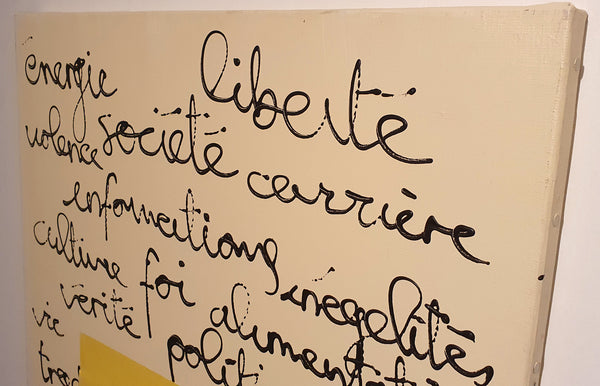 énergie liberté
violence société carrière
informations
culture foi inégalités
vérité alimentat
vie politi
trad